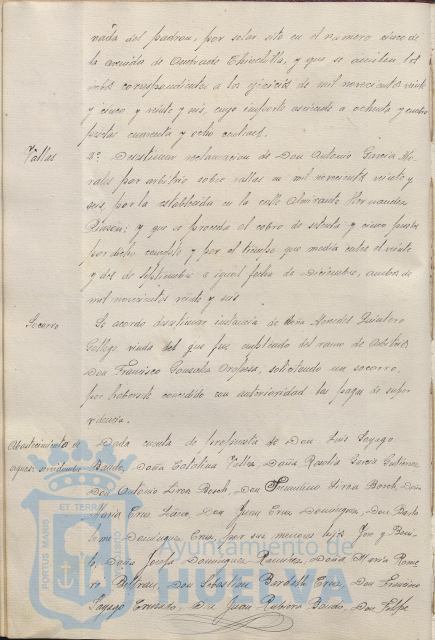 nada del padron, por solar sito en el numero cinco de
la avenida de Andrade Chinchilla, y que se anulen los
recibos correspondientes a los ejercicios de mil novecientos veinte
y cinco y veinte y seis, cuyo importe asciende a ochenta y cuatro
pesetas cuarenta y ocho centimos.
Vallas
3º Desestimar reclamacion de Don Antonio Garcia Mo-
rales por arbitrio sobre vallas en mil novecientos veinte y
seis, por la establecida en la calle Almirante Hernandez
Pinzon; y que se proceda al cobro de setenta y cinco pesetas
por dicho concepto y por el tiempo que media entre el veinte
y dos de Septiembre a igual fecha de Diciembre, ambos de
mil novecientos veinte y seis
Socorro
Se acordo desestimar instancia de Doña Mercedes Quintero
Gallego, viuda del que fue empleado del ramo de Arbitrios
Don Francisco Gonzalez Oropesa, solicitando un socorro,
por habersele concedido con anterioridad las pagas de super
vivencia.
Abastecimiento de
aguas: servidumbre
Dada cuenta de propuesta de Don Luis Sayago
Bando, Doña Catalina Doña Rosalia Garcia Gutierrez
Don Antonio Bosch, Don Bosch, Doña
Maria Cruz Don Juan Cruz Dominguez, Don Barto
lome Dominguez Cruz, por sus menores hijos y Beni
to, Doña Josefa Dominguez Ramirez, Doña Maria Rome
ro Beltran, Don Sebastian Cruz, Don Francisco
Sayago Don Juan Bando, Don Felipe
PORTUS MARIS ET TERRAE
Ayuntamiento de
HUELVA